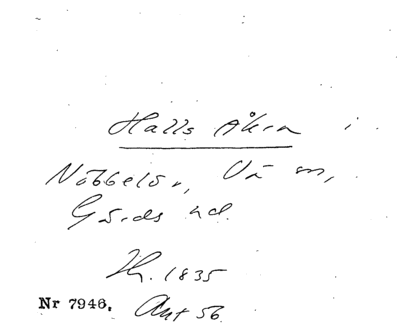 Halls Åkra i
Nöbbelöv, Vä sn,
Gärds hd.
Hr. 1835
Nr 7946. Ant 56